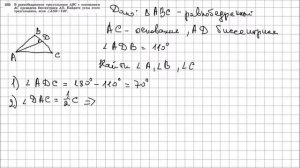 В равнобедренном треугольнике ABC с основанием
AC проведена биссектриса AD. Найдите углы этого
треугольника, если ∠ADB = 110°.
B
D
A
C
Дано: △ABC - равнобедренный
AC - основание, AD биссектриса
∠ADB = 110°
Найти ∠A, ∠B, ∠C
1) ∠ADC = 180° - 110° = 70°
2) ∠DAC = 1/2 C =>